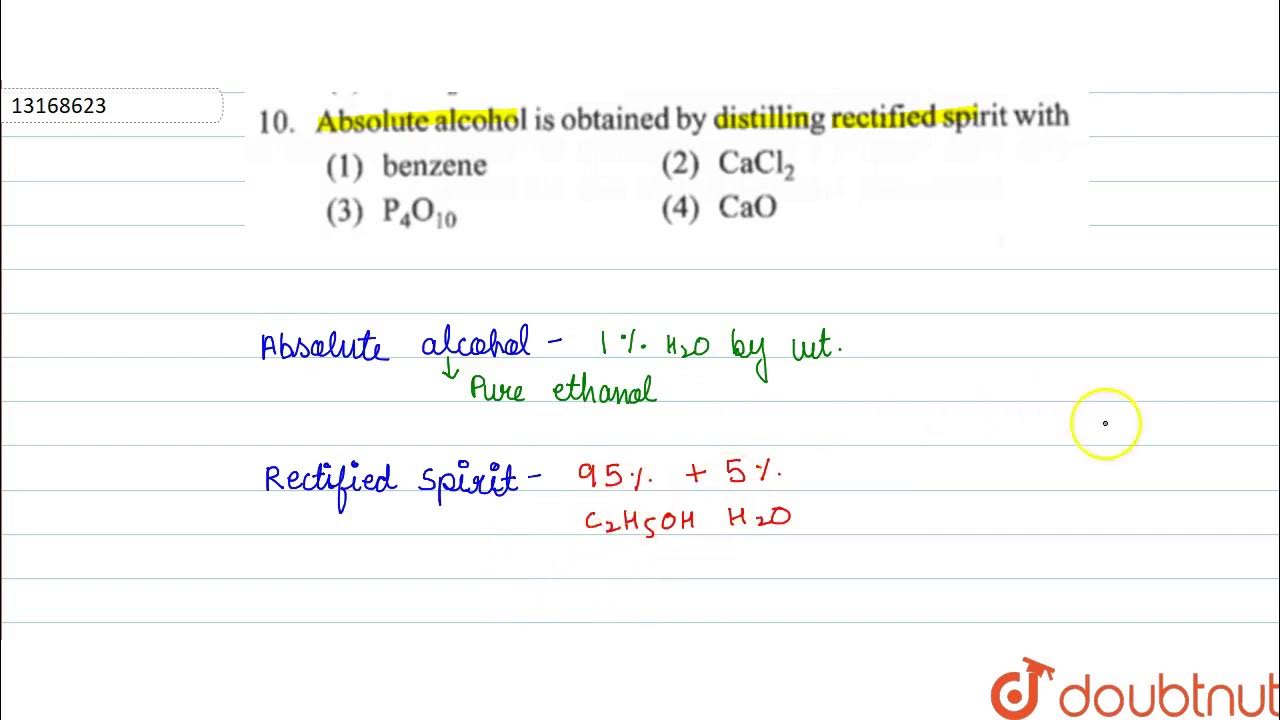 13168623
10. Absolute alcohol is obtained by distilling rectified spirit with
(1) benzene (2) CaCl₂
(3) P₄O₁₀ (4) CaO
Absolute alcohol - 1% H₂O by wt.
↓ Pure ethanol
Rectified Spirit - 95% + 5%
C₂H₅OH H₂O
doubtnut